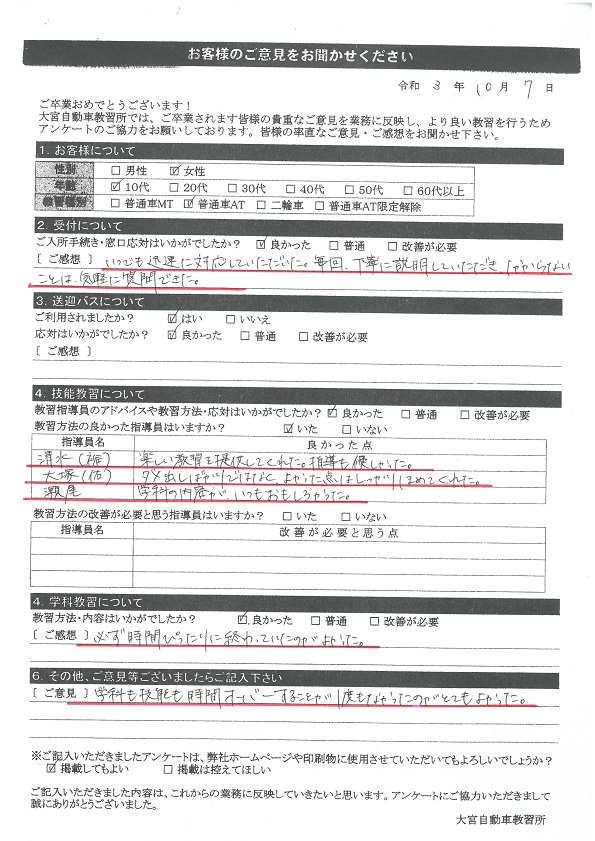 お客様のご意見をお聞かせください
令和 3 年 10 月 7 日
ご卒業おめでとうございます！
大宮自動車教習所では、ご卒業されます皆様の貴重なご意見を業務に反映し、より良い教習を行うため
アンケートのご協力をお願いしております。皆様の率直なご意見・ご感想をお聞かせ下さい。
1. お客様について
性別 □ 男性 ☑ 女性
年齢 ☑ 10代 □ 20代 □ 30代 □ 40代 □ 50代 □ 60代以上
教習種別 □ 普通車MT ☑ 普通車AT □ 二輪車 □ 普通車AT限定解除
2. 受付について
ご入所手続き・窓口応対はいかがでしたか？ ☑ 良かった □ 普通 □ 改善が必要
[ ご感想 ] いつでも迅速に対応していただいた。毎回、丁寧に説明していただき、わからない
ことは、気軽に質問できた。
3. 送迎バスについて
ご利用されましたか？ ☑ はい □ いいえ
応対はいかがでしたか？ ☑ 良かった □ 普通 □ 改善が必要
[ ご感想 ]
4. 技能教習について
教習指導員のアドバイスや教習方法・応対はいかがでしたか？ ☑ 良かった □ 普通 □ 改善が必要
教習方法の良かった指導員はいますか？ ☑ いた □ いない
指導員名 良かった点
清水(裕) 楽しい教習を提供してくれた。指導も優しかった。
大塚(佑) ダメ出しばかりではなく、よかった点はしっかりほめてくれた。
瀬尾 学科の内容が、いつもおもしろかった。
教習方法の改善が必要と思う指導員はいますか？ □ いた □ いない
指導員名 改善が必要と思う点
4. 学科教習について
教習方法・内容はいかがでしたか？ ☑ 良かった □ 普通 □ 改善が必要
[ ご感想 ] 必ず時間ぴったりに終わっていたのがよかった。
6. その他、ご意見等ございましたらご記入下さい
[ ご意見 ] 学科も技能も時間オーバーすることが1度もなかったのがとてもよかった。
※ご記入いただきましたアンケートは、弊社ホームページや印刷物に使用させていただいてもよろしいでしょうか？
☑ 掲載してもよい □ 掲載は控えてほしい
ご記入いただきました内容は、これからの業務に反映していきたいと思います。アンケートにご協力いただきまして
誠にありがとうございました。
大宮自動車教習所